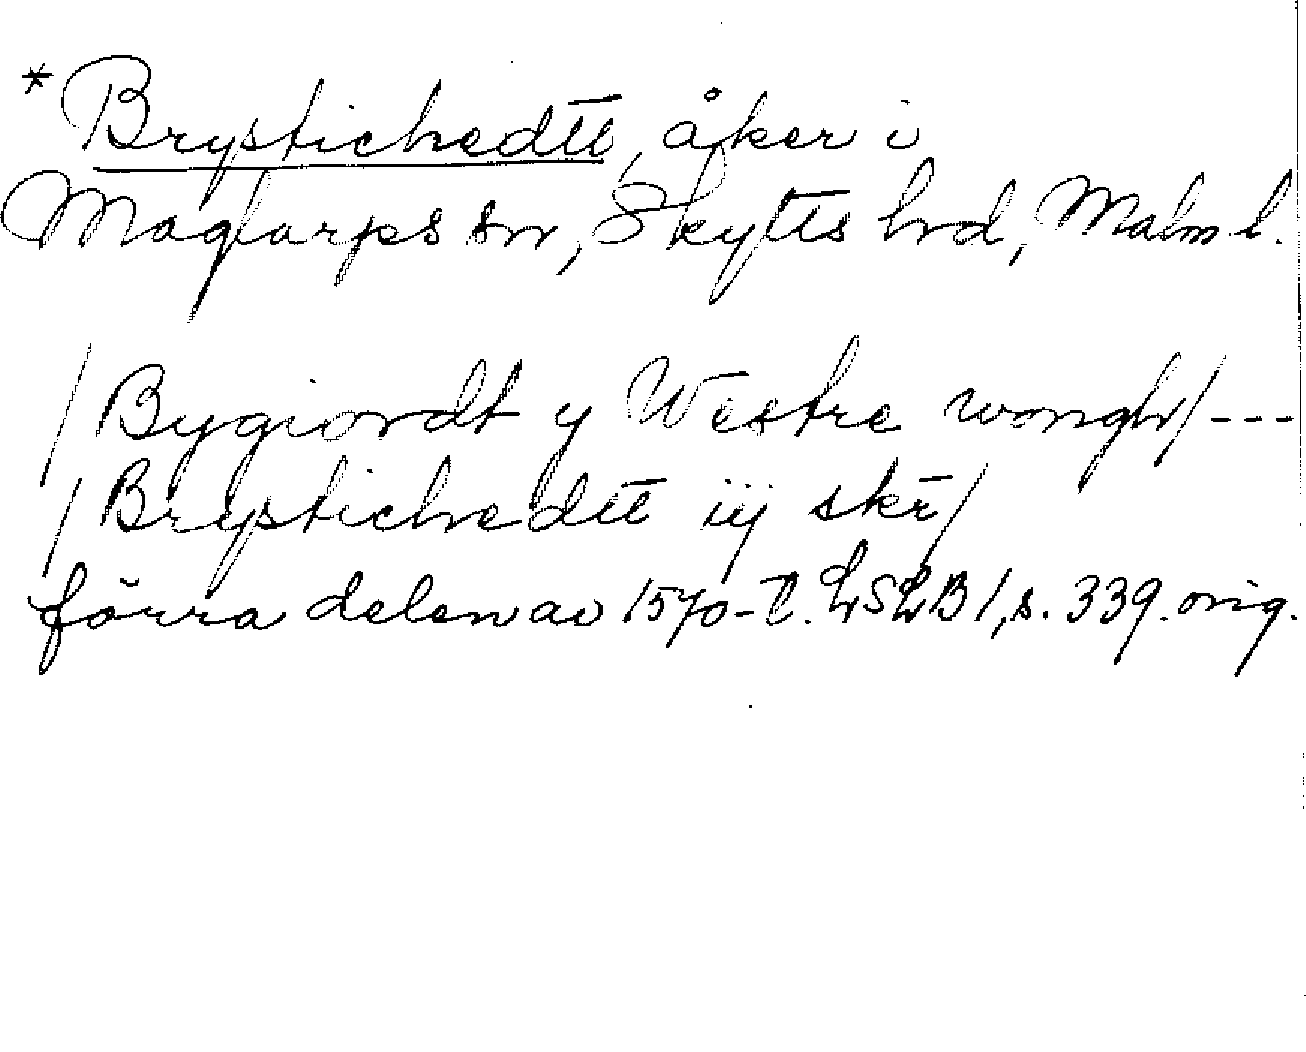 *Brystichedtt, åker i
Maglarps sn, Skytts hd, Malm l.
/Bygiordt y Westre wongh/---
/Brystichedtt iij skr/
förra delen av 1570-t. LSLB 1, s. 339. orig.